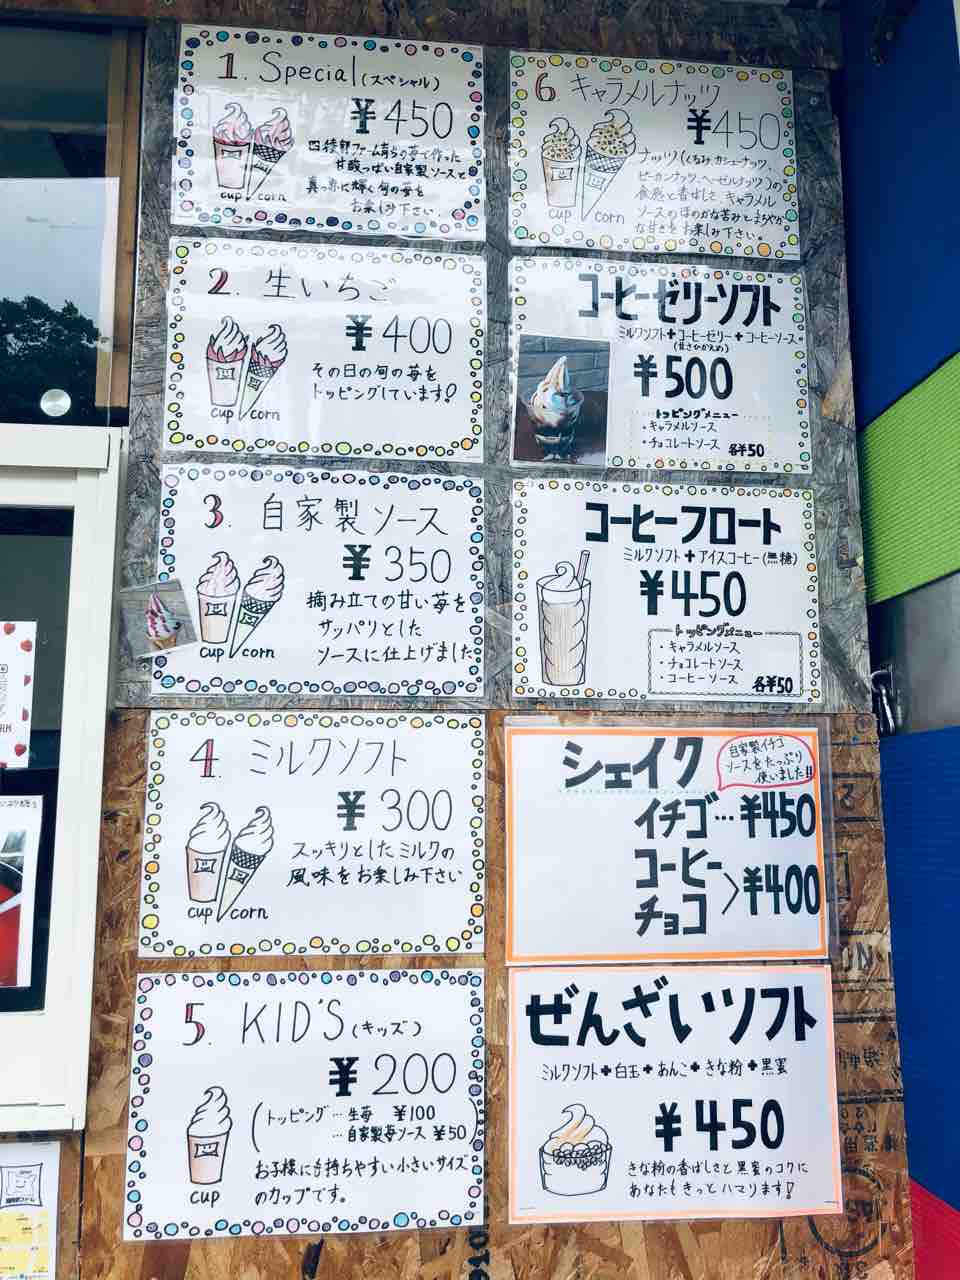 1. Special(スペシャル)
¥450
四稜郭ファーム育ちの苺で作った
甘酸っぱい自家製ソースと
真っ赤に輝く旬の苺を
お楽しみ下さい.
cup corn
2. 生いちご
¥400
その日の旬の苺を
トッピングしています!
cup corn
3. 自家製ソース
¥350
摘み立ての甘い苺を
サッパリとした
ソースに仕上げました
cup corn
4. ミルクソフト
¥300
スッキリとしたミルクの
風味をお楽しみ下さい
cup corn
5. KID'S(キッズ)
¥200
(トッピング…生苺 ¥100
…自家製苺ソース ¥50)
お子様にも持ちやすい小さいサイズ
のカップです。
cup
6. キャラメルナッツ
¥450
ナッツ(くるみ、カシューナッツ、
ピーカンナッツ、ヘーゼルナッツ)の
食感と香ばしさ、キャラメル
ソースのほのかな苦みとまろやか
な甘さをお楽しみ下さい。
cup corn
コーヒーゼリーソフト
ミルクソフト+コーヒーゼリー+コーヒーソース
(甘さひかえめ)
¥500
トッピングメニュー
・キャラメルソース
・チョコレートソース 各¥50
コーヒーフロート
ミルクソフト+アイスコーヒー(無糖)
¥450
トッピングメニュー
・キャラメルソース
・チョコレートソース
・コーヒーソース 各¥50
シェイク
自家製イチゴ
ソースをたっぷり
使いました!!
イチゴ…¥450
コーヒー
チョコ
¥400
ぜんざいソフト
ミルクソフト+白玉+あんこ+きな粉+黒蜜
¥450
きな粉の香ばしさと黒蜜のコクに
あなたもきっとハマります!